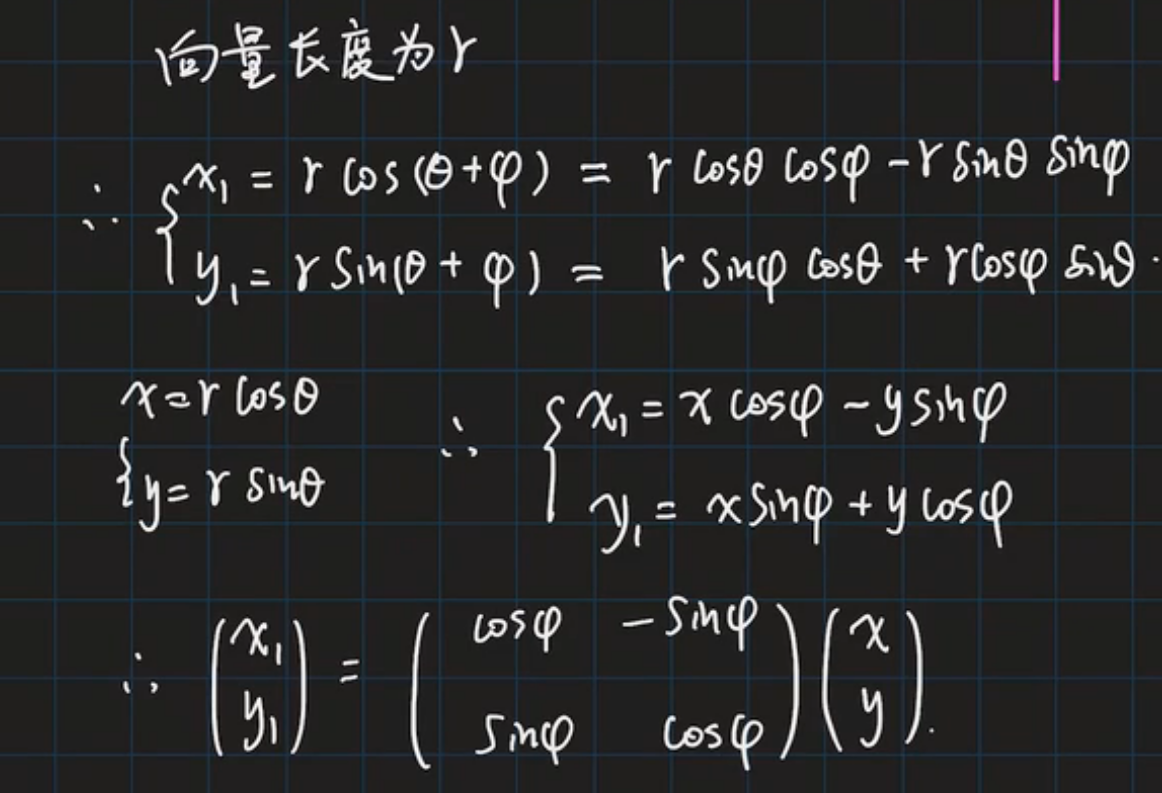 向量长度为r
∴ { x₁ = r cos(θ+φ) = r cosθ cosφ - r sinθ sinφ
y₁ = r sin(θ + φ) = r sinφ cosθ + r cosφ sinθ.
{ x = r cosθ
y = r sinθ
∴ { x₁ = x cosφ - y sinφ
y₁ = x sinφ + y cosφ
∴ (x₁ y₁) = (cosφ -sinφ
sinφ cosφ) (x y).